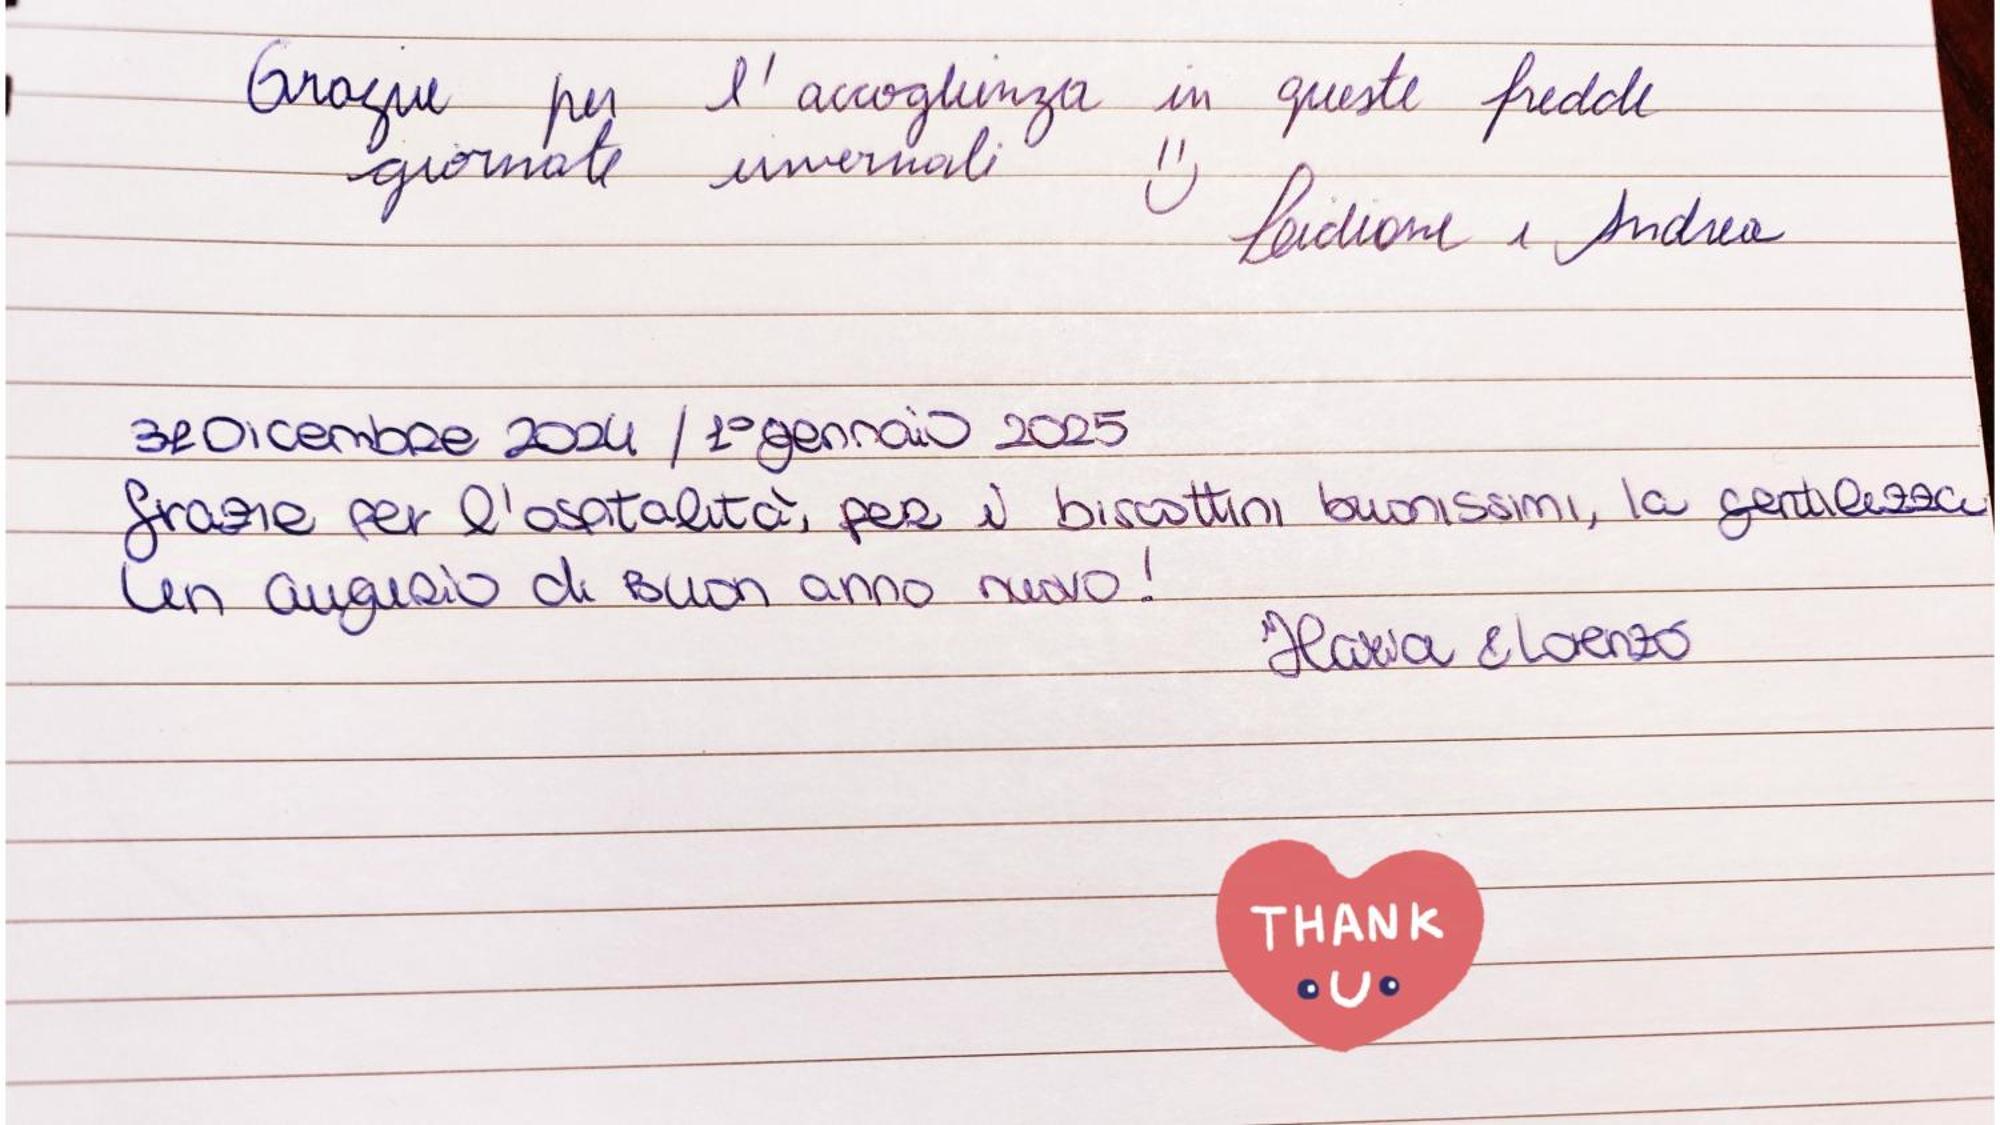 Grazie per l'accoglienza in queste fredde
giornate invernali
e Andrea
31 Dicembre 2024 / 1° gennaio 2025
Grazie per l'ospitalità, per i biscottini buonissimi, la gentilezza
Un augurio di Buon anno nuovo!
Ilaria e Lorenzo
THANK
U